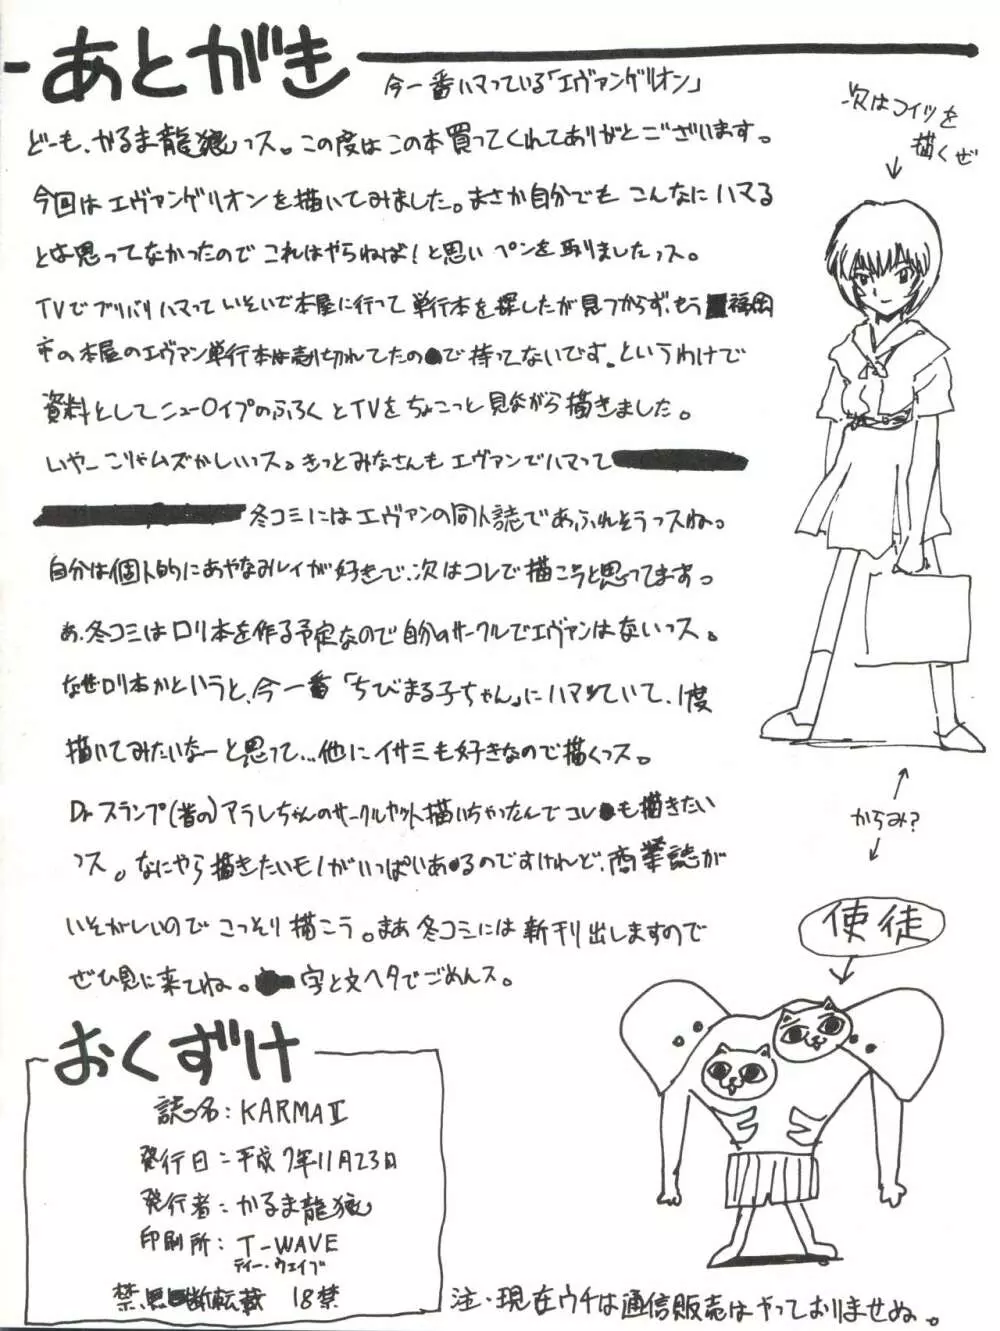 あとがき
今一番ハマっている「エヴァンゲリオン」
どーも、かるま龍狼っス。この度はこの本買ってくれてありがとございます。
今回はエヴァンゲリオンを描いてみました。まさか自分でもこんなにハマる
とは思ってなかったのでこれはやらねば!と思いペンを取りましたっス。
TVでブリバリハマっていそいで本屋に行って単行本を探したが見つからず、もう福岡
市の本屋のエヴァン単行本は売り切れてたので持ってないです。というわけで
資料としてニュー〇イプのふろくとTVをちょこっと見ながら描きました。
いやーこりゃムズかしいっス。きっとみなさんもエヴァンでハマって
冬コミにはエヴァンの同人誌であふれそうっスね。
自分は個人的にあやなみレイが好きで、次はコレで描こうと思ってますっ
あ、冬コミはロリ本を作る予定なので自分のサークルでエヴァンはないっス。
なぜロリ本かというと、今一番「ちびまる子ちゃん」にハマっていて、1度
描いてみたいなーと思って…他にイサミも好きなので描くっス。
Dr.スランプ(昔の)アラレちゃんのサークルカット描いちゃったんでコレも描きたい
っス。なにやら描きたいモノがいっぱいあるのですけれど、商業誌が
いそがしいのでこっそり描こう。まあ冬コミには新刊出しますので
ぜひ見に来てね。字と文ヘタでごめんス。
次はコイツを
描くぜ
からみ?
使徒
おくずけ
誌名:KARMAⅡ
発行日:平成7年11月23日
発行者:かるま龍狼
印刷所:T-WAVE
ティー・ウェイブ
禁無断転載 18禁
注・現在ウチは通信販売はやっておりませぬ。